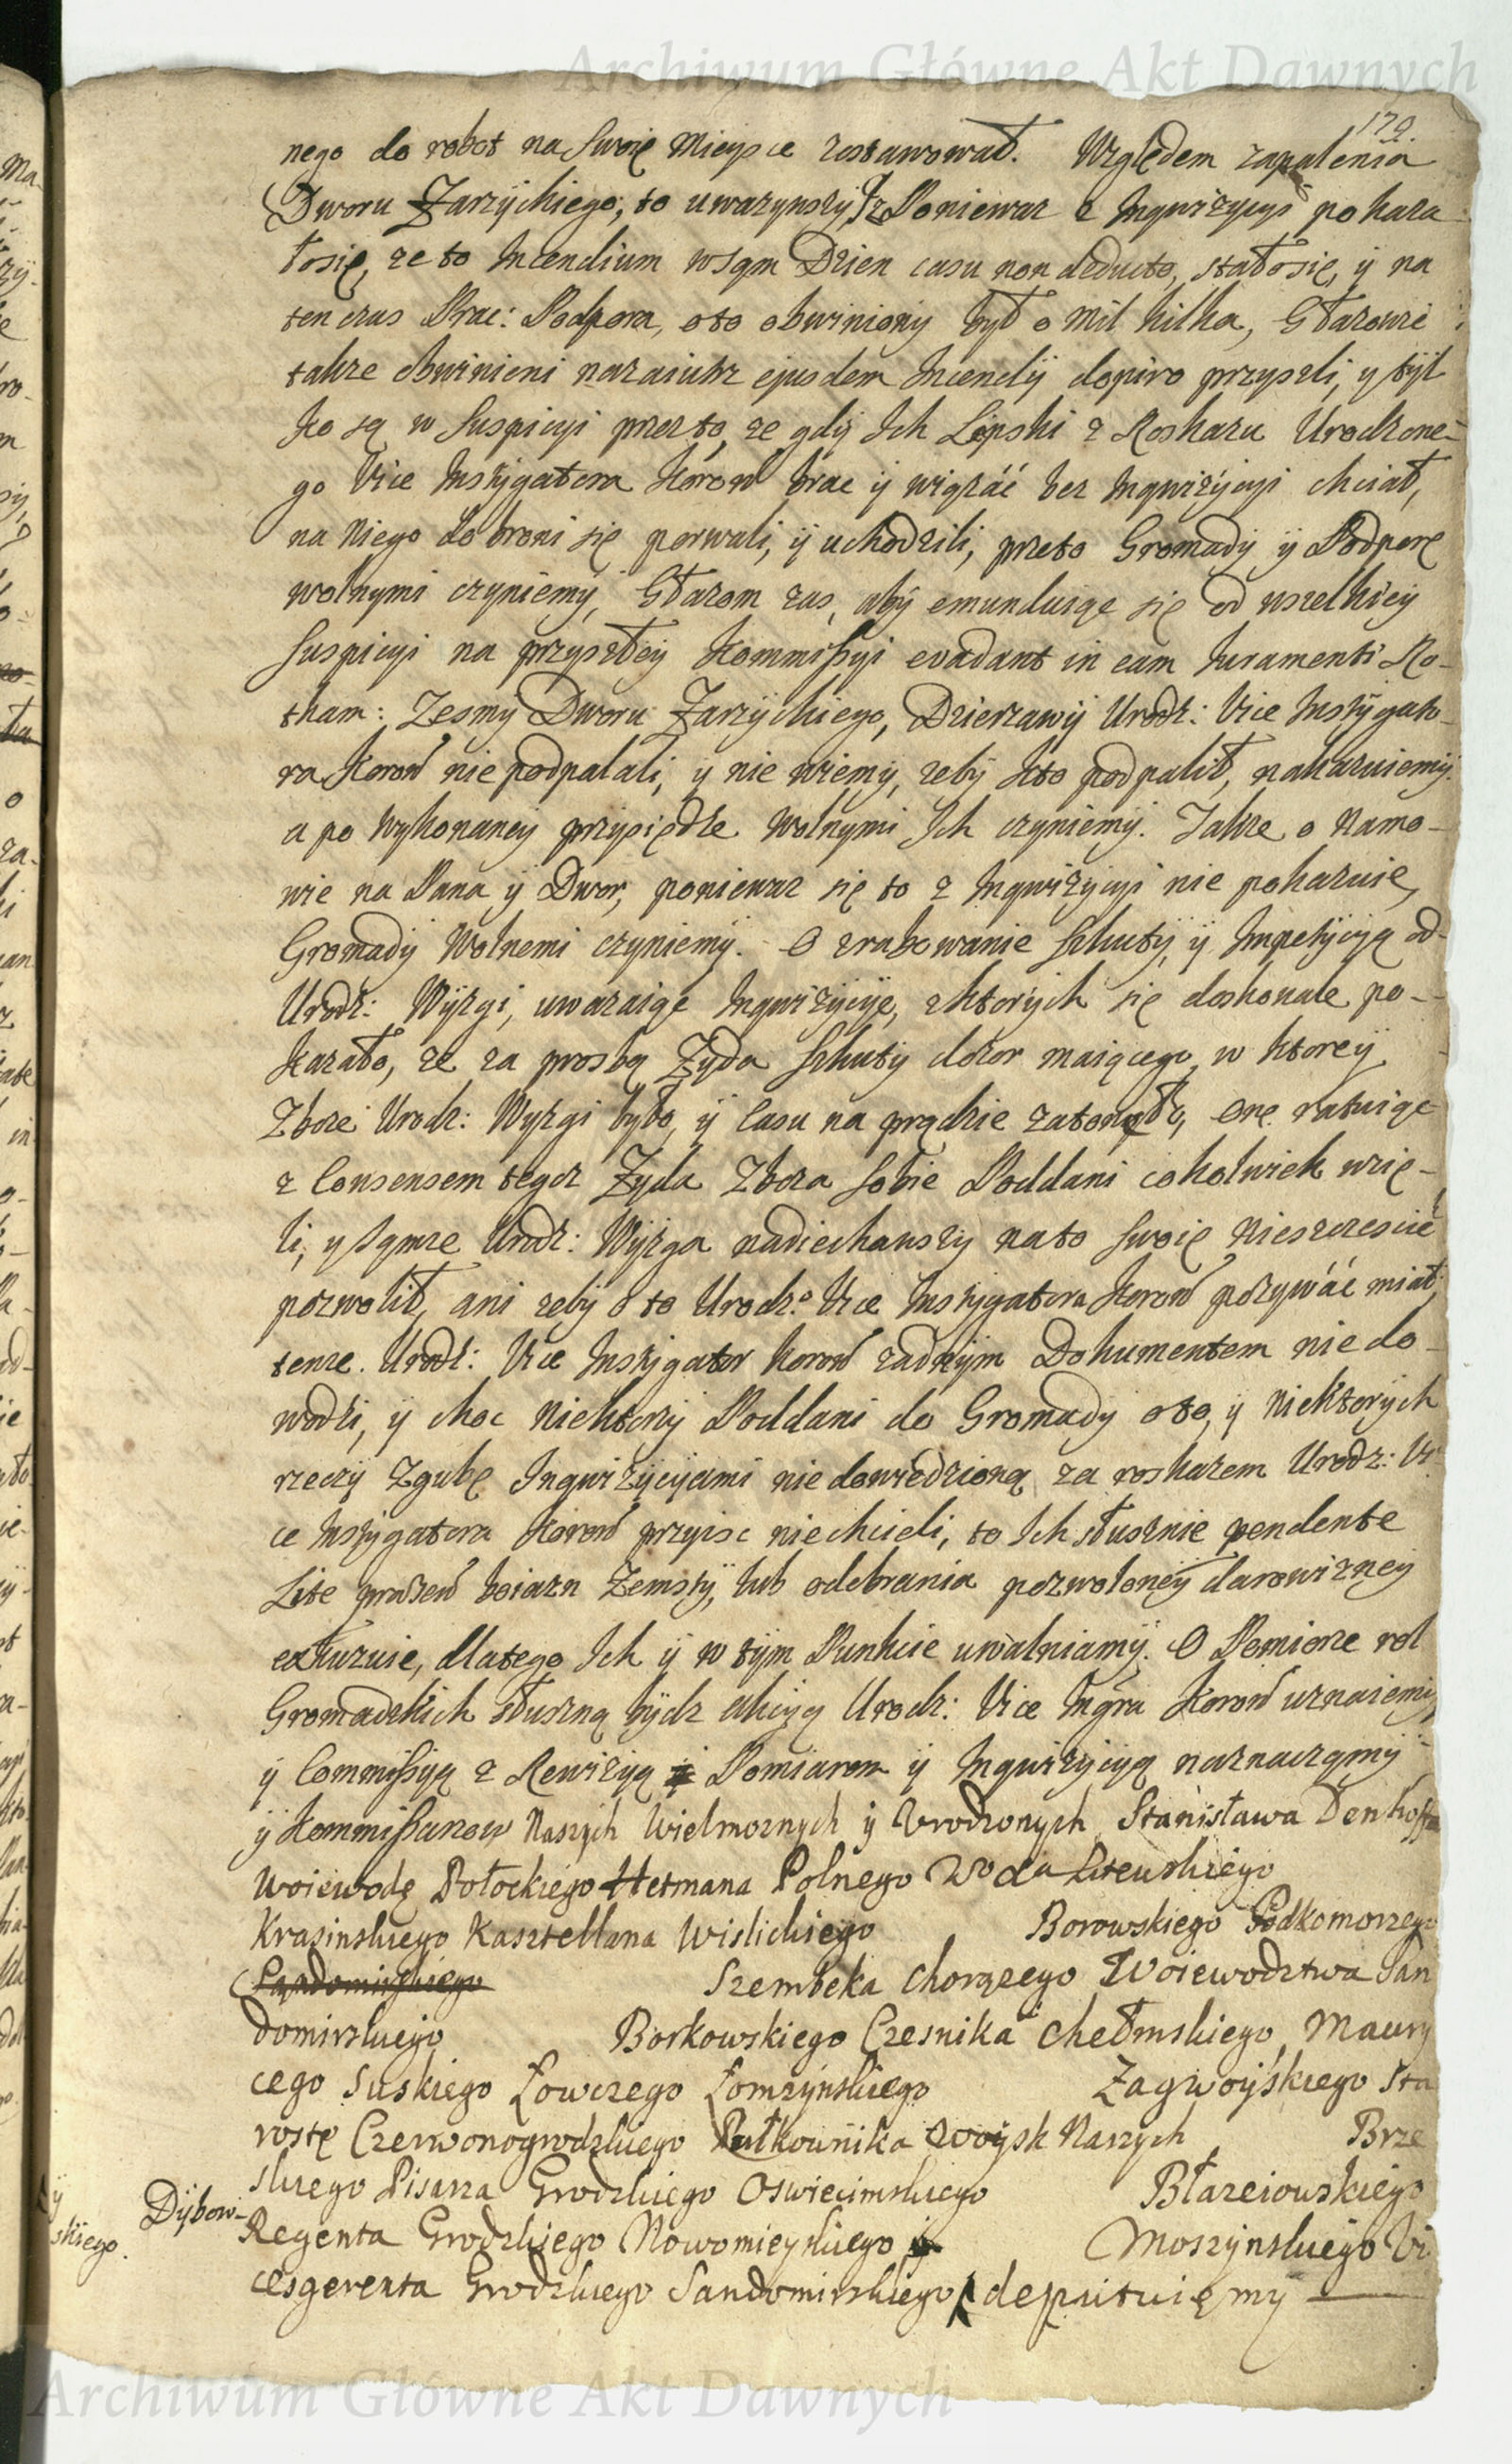 Archiwum Główne Akt Dawnych
179.
nego do robot na Swoię Mieysce zostawował. Względem zapalenia
Dworu Zarzyckiego, to uwazywszy, iz Poniewaz z Inqwizycyi pokaza-
łosię, ze to Incendium wsąm Dzien casu non deducto, stałosię, y na
ten czas Prac: Podpora, oto obwiniony był o mil kilka, Głazowie
takze obwinieni nazaiutrz ejusdem Incendÿ dopiro przyszli, y tÿl
ko są w Suspicyi przez to, ze gdÿ Ich Lipski z Roskazu Urodzone-
go Vice Instÿgatora Koron brac ÿ wiązáć bez Inqwizÿcyi chciał,
na Niego do broni się porwali, ÿ uchodzili, przeto Gromadÿ ÿ Podporę
wolnymi czyniemÿ, Głazom zas, abÿ emunduiąc się od wszelkiey
Suspicyi na przyszłeÿ Kommissyi evadant in eam Juramenti Ro-
tham: Zesmÿ Dworu Zarzÿckiego, Dzierzawÿ Urodz: Vice Instÿgato-
ra Koron nie podpalali, ÿ nie wiemÿ, zebÿ kto podpalił, nakazuiemÿ
a po wykonaneÿ przysiędze wolnymi Ich czyniemÿ. Takze o Namo-
wie na Pana ÿ Dwor, poniewaz się to z Inqwizÿcyi nie pokazuie,
Gromadÿ Wolnemi czyniemÿ. O zrabowanie Szkutÿ, ÿ Impetÿcyą od
Urodz: Wÿzgi, uwazaiąc Inqwizÿcÿe, z ktorÿch się doskonale po-
kazało, ze za prosbą Zyda Szkutÿ dozor maiącego, w ktoreÿ
Zboze Urodz: Wyzgi było, ÿ Casu na prądzie zatonęło, onę ratuiąc
z Consensem tegoz Zyda Zboza Sobie Poddani cokolwiek wzię-
li, y sąmze Urodz: Wÿzga nadiechawszÿ na to Swoię Nieszczescie
pozwolił, ani zebÿ o to Urodz.º Vice Instÿgatora Koron pozÿwáć miał,
tenze. Urodz: Vice Instÿgator Koron zadnÿm Dokumentem nie do-
wodzi, ÿ choc Niektorzÿ Poddani do Gromadÿ oto, ÿ niektorÿch
rzeczÿ Zgubę Inqwizÿcÿami nie dowiedzioną za roskazem Urodz: Vi-
ce Instÿgatora Koron przyisc niechcieli, to Ich słusznie pendente
Lite prawem boiazn Zemstÿ, lub odebrania pozwoloneÿ darowizneÿ
exkuzuie, dlatego Ich ÿ w tÿm Punkcie uwalniamÿ. O Pomiorze rol
Gromadzkich słuszną bÿdz akcyą Urodz: Vice Ingra Koron uznaiemÿ,
ÿ Commissyą z Rewizyą Pomiarem ÿ Inqwizÿcyą naznaczamÿ
ÿ Kommissarzow Naszÿch Wielmoznych ÿ Urodzonych Stanisława Denhoffa
Woiewodę Połockiego Hetmana Polnego W° Xa Litewskiego
Krasinskiego Kasztellana Wislickiego Borowskiego Podkomorzego
Sandomirskiego Szembeka Chorązego Woiewodztwa San
domirskiego Borkowskiego Czesnika Chełmskiego, Maury
cego Suskiego Łowczego Łomzynskiego Zagwoÿskiego Sta
rostę Czerwonogrodzkiego Pułkownika Woysk Naszych Brze
skiego Pisarza Grodzkiego Oswiecimskiego Błazeiowskiego
Dÿbow-
skiego.
Regenta Grodzkiego Nowomieÿskiego Moszynskiego Vi
cesgerenta Grodzkiego Sandomirskiego deputuięmy
Archiwum Główne Akt Dawnych